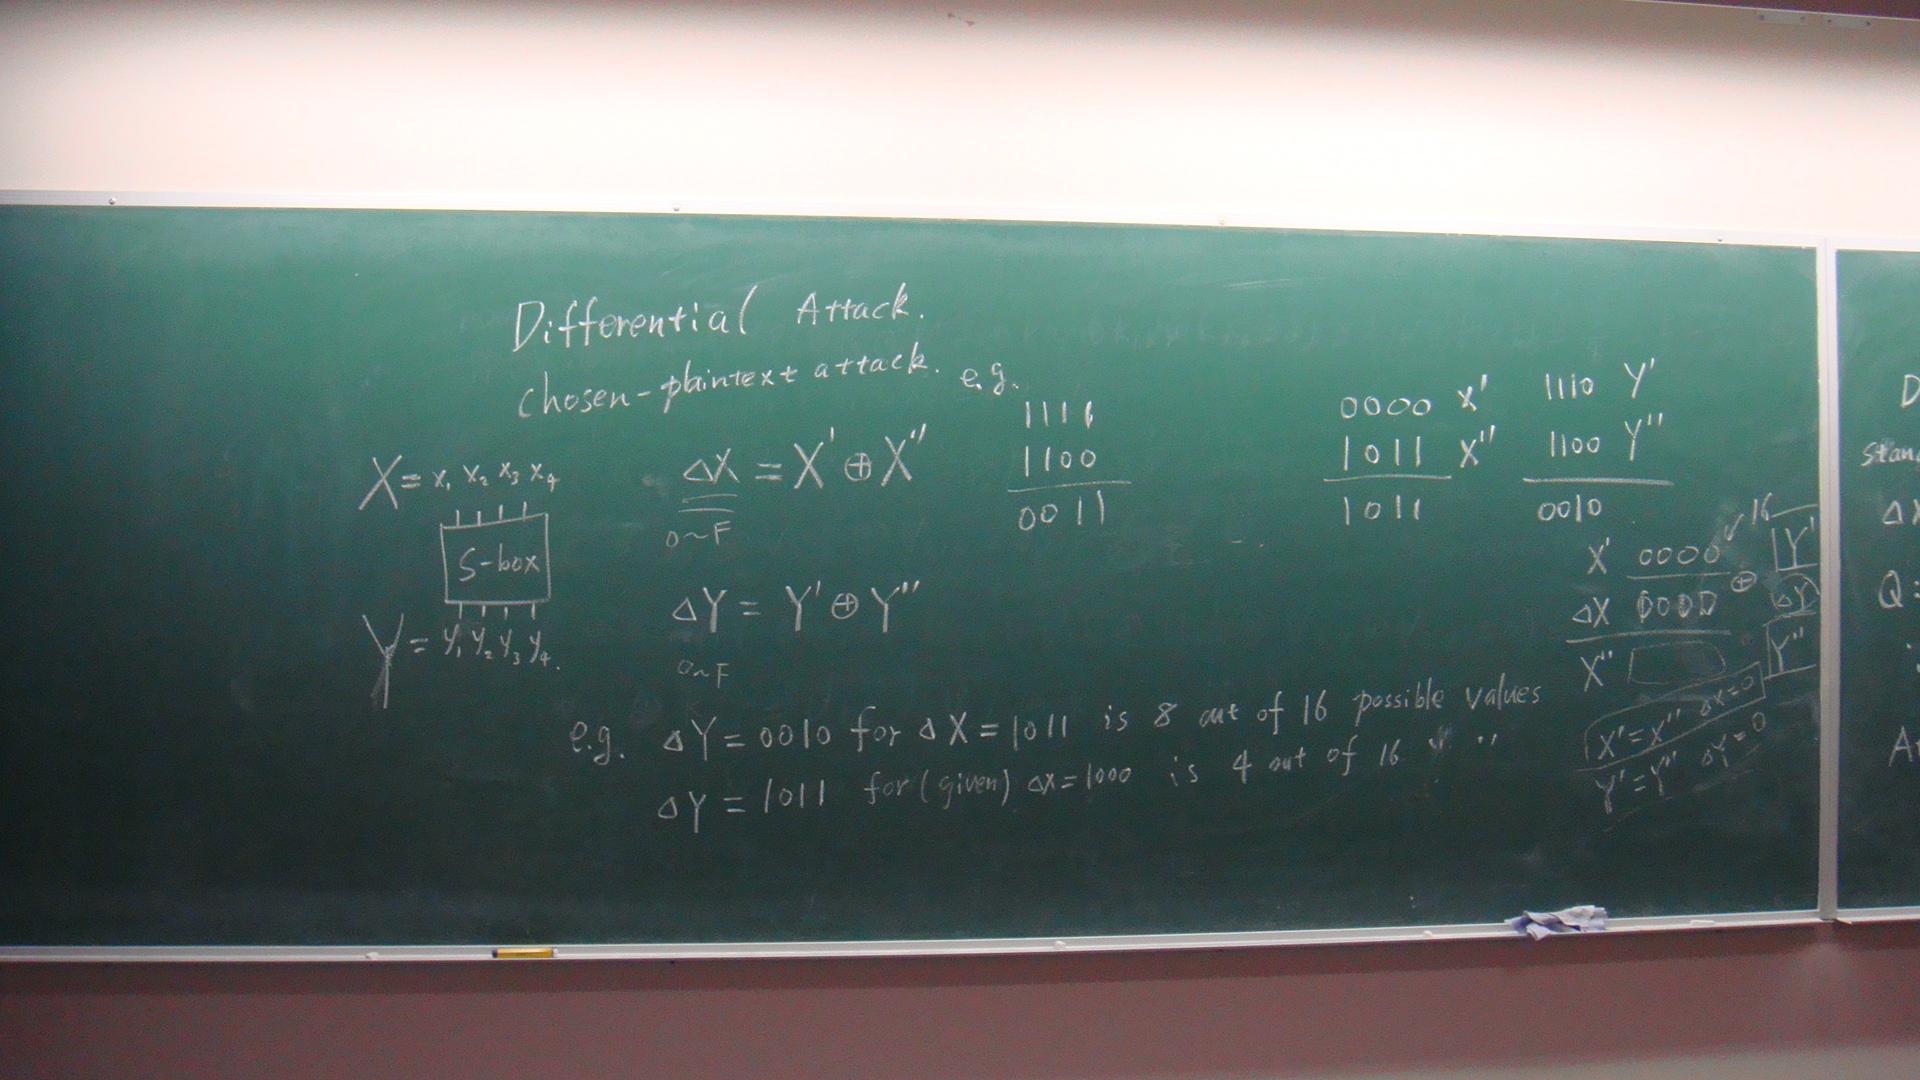 Differential Attack.
chosen-plaintext attack.
X = x₁ x₂ x₃ x₄
S-box
Y = y₁ y₂ y₃ y₄.
ΔX = X' ⊕ X''
0~F
ΔY = Y' ⊕ Y''
0~F
e.g.
1111
1100
0011
0000 X'
1011 X''
1011
1110 Y'
1100 Y''
0010
X' 0000 ✓ 16 Y'
ΔX 0000 ⊕ ΔY
X'' Y''
X'=X'' ΔX=0
Y'=Y'' ΔY=0
e.g. ΔY = 0010 for ΔX = 1011 is 8 out of 16 possible values
ΔY = 1011 for (given) ΔX=1000 is 4 out of 16 " "
D
stan
ΔX
Q:
A